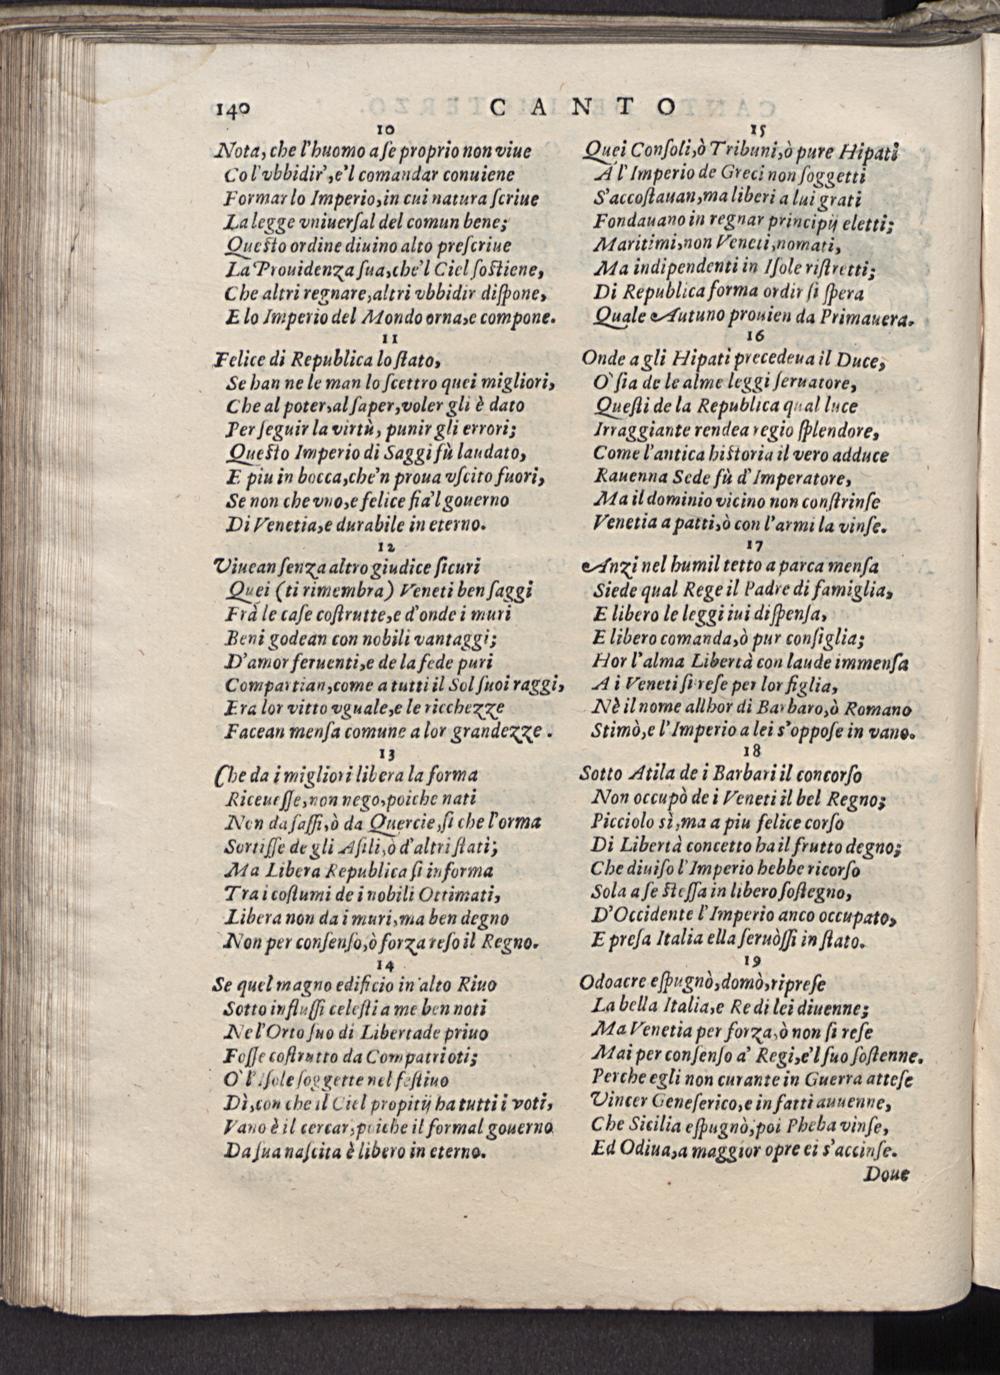 140 CANTO
10
Nota, che l'huomo a ſe proprio non viue
Co l'vbbidir', e'l comandar conuiene
Formar lo Imperio, in cui natura ſcriue
La legge vniuerſal del comun bene;
Queſto ordine diuino alto preſcriue
La Prouidenza ſua, che'l Ciel ſoſtiene,
Che altri regnare, altri vbbidir diſpone,
E lo Imperio del Mondo orna, e compone.
11
Felice di Republica lo ſtato,
Se han ne le man lo ſcettro quei migliori,
Che al poter, al ſaper, voler gli è dato
Per ſeguir la virtù, punir gli errori;
Queſto Imperio di Saggi fù laudato,
E piu in bocca, che'n proua vſcito fuori,
Se non che vno, e felice fia'l gouerno
Di Venetia, e durabile in eterno.
12
Viuean ſenza altro giudice ſicuri
Quei (ti rimembra) Veneti ben ſaggi
Frà le caſe coſtrutte, e d'onde i muri
Beni godean con nobili vantaggi;
D'amor feruenti, e de la fede puri
Compartian, come a tutti il Sol ſuoi raggi,
Era lor vitto vguale, e le ricchezze
Facean menſa comune a lor grandezze.
13
Che da i migliori libera la forma
Riceueſſe, non nego, poiche nati
Non da ſaſſi, ò da Quercie, ſi che l'orma
Sortiſſe de gli Aſili, ò d'altri ſtati;
Ma Libera Republica ſi informa
Tra i coſtumi de i nobili Ottimati,
Libera non da i muri, ma ben degno
Non per conſenſo, ò forza reſo il Regno.
14
Se quel magno edificio in alto Riuo
Sotto influſſi celeſti a me ben noti
Ne l'Orto ſuo di Libertade priuo
Foſſe coſtrutto da Compatrioti;
O' l'iſole ſoggette nel feſtiuo
Dì, con che il Ciel propitij ha tutti i voti,
Vano è il cercar, poiche il formal gouerno
Da ſua naſcita è libero in eterno.
15
Quei Conſoli, ò Tribuni, ò pure Hipati
A l'Imperio de Greci non ſoggetti
S'accoſtauan, ma liberi a lui grati
Fondauano in regnar principij eletti;
Maritimi, non Veneti, nomati,
Ma indipendenti in Iſole riſtretti;
Di Republica forma ordir ſi ſpera
Quale Autuno prouien da Primauera.
16
Onde a gli Hipati precedeua il Duce,
O' ſia de le alme leggi ſeruatore,
Queſti de la Republica qual luce
Irraggiante rendea regio ſplendore,
Come l'antica hiſtoria il vero adduce
Rauenna Sede fù d'Imperatore,
Ma il dominio vicino non conſtrinſe
Venetia a patti, ò con l'armi la vinſe.
17
Anzi nel humil tetto a parca menſa
Siede qual Rege il Padre di famiglia,
E libero le leggi iui diſpenſa,
E libero comanda, ò pur conſiglia;
Hor l'alma Libertà con laude immenſa
A i Veneti ſi reſe per lor figlia,
Nè il nome allhor di Barbaro, ò Romano
Stimò, e l'Imperio a lei s'oppoſe in vano.
18
Sotto Atila de i Barbari il concorſo
Non occupò de i Veneti il bel Regno;
Picciolo sì, ma a piu felice corſo
Di Libertà concetto ha il frutto degno;
Che diuiſo l'Imperio hebbe ricorſo
Sola a ſe ſteſſa in libero ſoſtegno,
D'Occidente l'Imperio anco occupato,
E preſa Italia ella ſeruòſſi in ſtato.
19
Odoacre eſpugnò, domò, ripreſe
La bella Italia, e Re di lei diuenne;
Ma Venetia per forza, ò non ſi reſe
Mai per conſenſo a' Regi, e'l ſuo ſoſtenne.
Perche egli non curante in Guerra atteſe
Vincer Geneſerico, e in fatti auuenne,
Che Sicilia eſpugnò, poi Pheba vinſe,
Ed Odiua, a maggior opre ei s'accinſe.
Doue